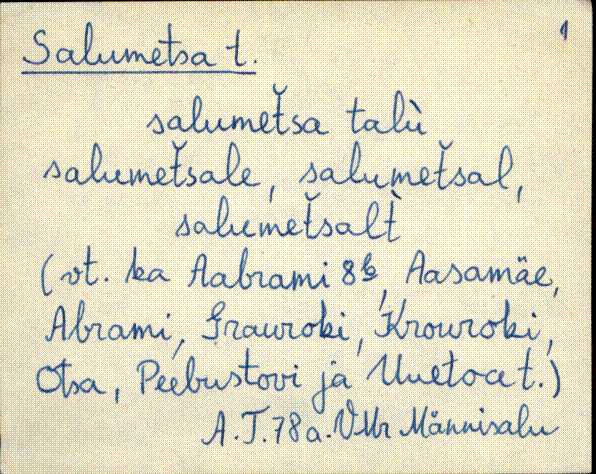 Salumetsa t. 1
salumet̆sa talù
salumet̆sale, salumet̆sal,
salumet̆salt̀
(vt. ka Aabrami 8b, Aasamäe,
Abrami, Grauroki, Krouroki,
Otsa, Peebustovi ja Uuetoa t.)
A.T.78a. VMr Männisalu